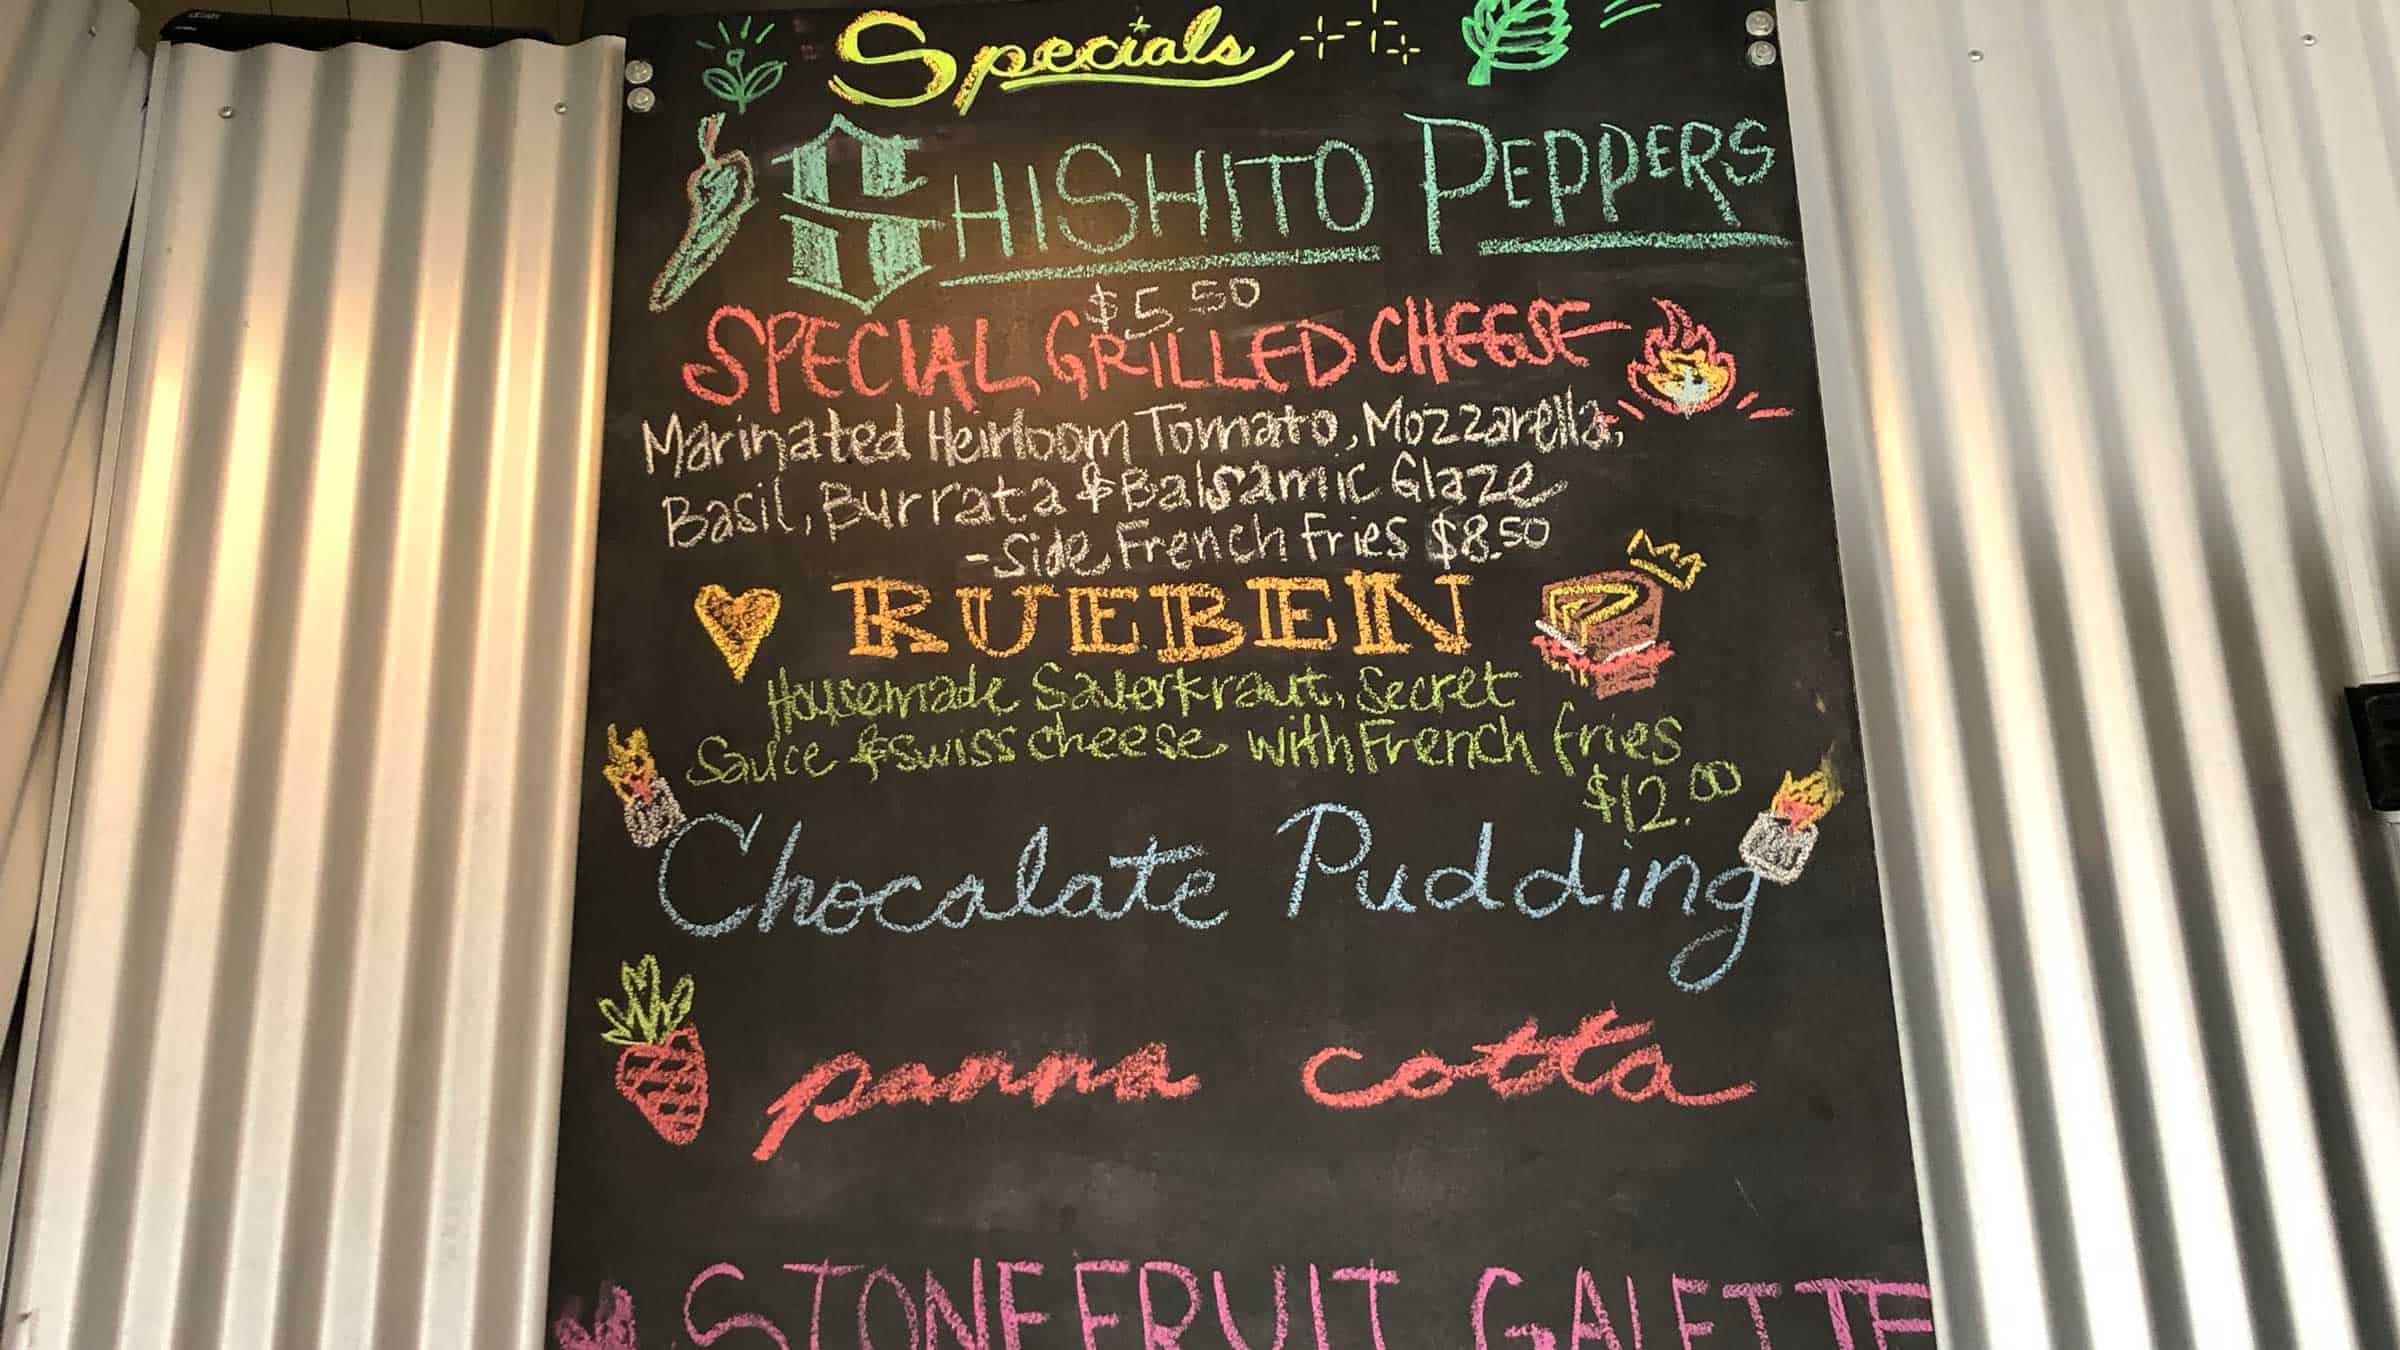 Specials
SHISHITO PEPPERS
$5.50
SPECIAL GRILLED CHEESE
Marinated Heirloom Tomato, Mozzarella,
Basil, Burrata & Balsamic Glaze
-Side French Fries $8.50
RUEBEN
Housemade Sauerkraut, Secret
Sauce & Swiss cheese with French fries
$12.00
Chocalate Pudding
panna cotta
STONEFRUIT GALETTE